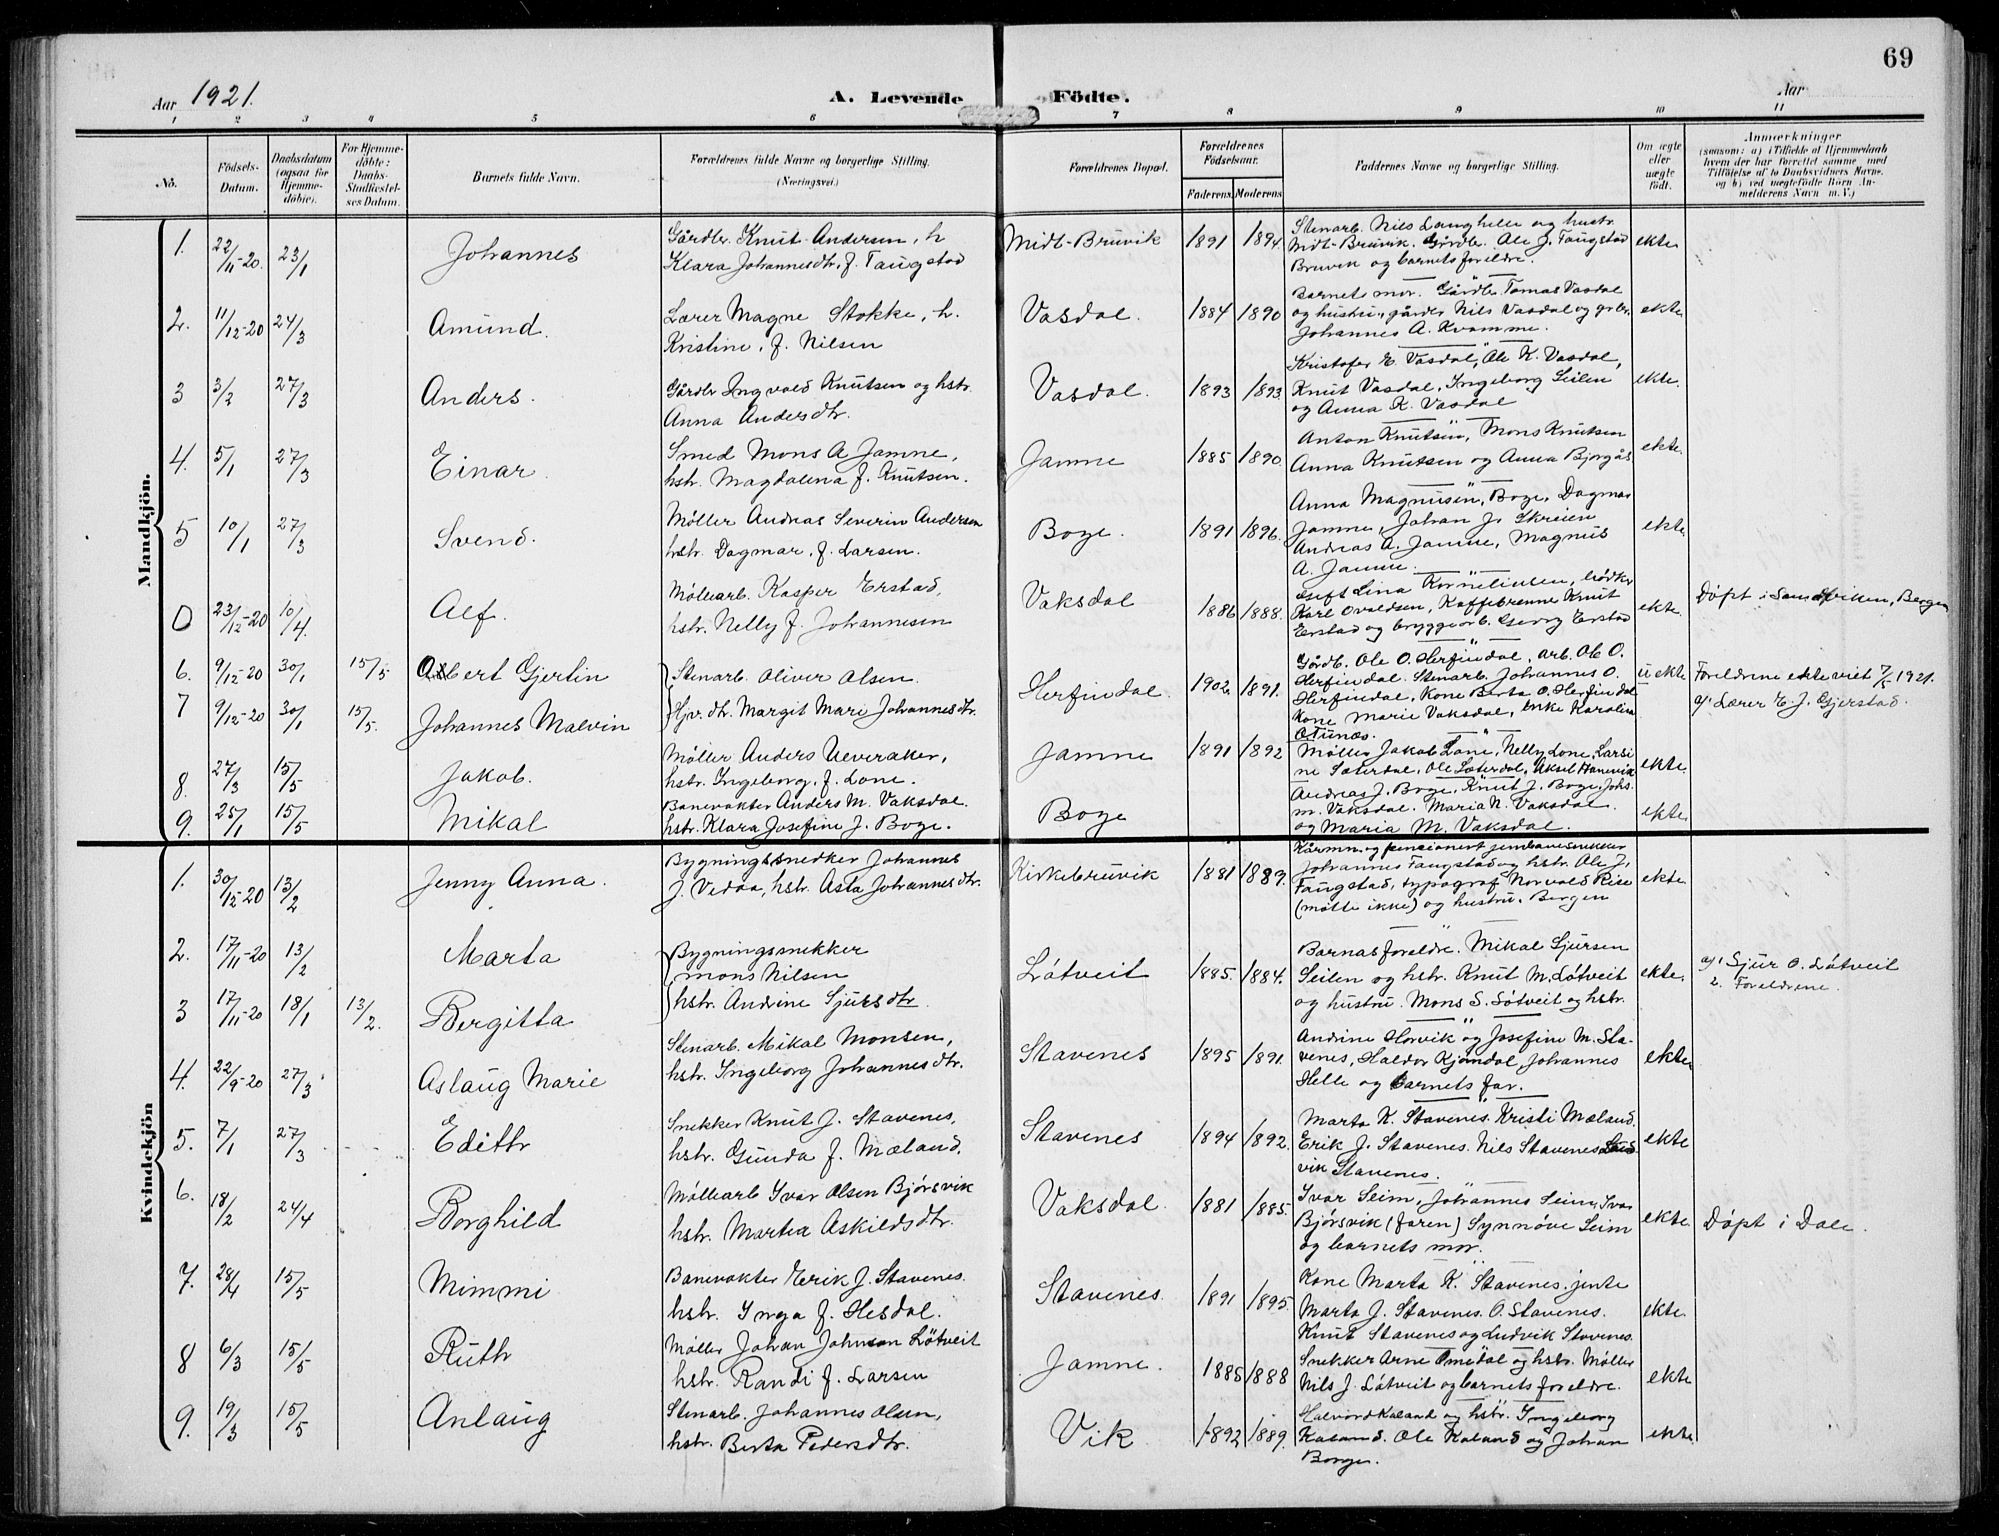 69
Aar 1921.
A. Levende Födte.
Aar
1 2 3 4 5 6 7 8 9 10 11
No.
Födsels-Datum.
Daabsdatum (ogsaa for Hjemmedöbte).
For Hjemmedöbte: Daabs-Stadfæstelses Datum.
Barnets fulde Navn.
Forældrenes fulde Navne og borgerlige Stilling.
(Næringsvei.)
Forældrenes Bopæl.
Forældrenes Födselsaar.
Faderens Moderens
Faddernes Navne og borgerlige Stilling.
Om ægte eller uægte födt.
Anmærkninger
(saasom: a) i Tilfælde af Hjemmedaab
hvem der har forrettet samme, med
Tilföielse af to Daabsvidners Navne,
og b) ved uægtefödte Börn An-
melderens Navn m. V.)
Mandkjön.
1. 22/11-20. 23/1 Johannes
Gårdbr. Knut Andersen, h
Klara Johannesdtr. f. Taugstad
Midt-Bruvik 1891 1894.
Stenarb. Nils Langhelle og hustr.
Midt-Bruvik. Gårdbr. Ole J. Taugstad
Bruvik og barnets foreldre.
ekte
2. 11/12-20 24/3 Amund.
Lærer Magne Stokke, h.
Kristine, f. Nilsen
Vasdal. 1884 1890
Barnets mor. Gårdbr. Tomas Vasdal
og hustru, gårdbr Nils Vasdal og grbr.
Johannes A. Kvamme.
ekte
3 3/2 27/3 Anders.
Gårdbr Ingvald Knutsen og hstr.
Anna Andersdtr.
Vasdal. 1893 1893.
Kristofer E. Vasdal, Ole K. Vasdal,
Knut Vasdal, Ingeborg Seilen
og Anna K. Vasdal
ekte.
4. 5/1 27/3 Einar.
Smed Mons A Jamne,
hstr. Magdalena f. Knutsen.
Jamne 1885 1890.
Anton Knutsen, Mons Knutsen
Anna Knutsen og Anna Bjorgås
ekte.
5 10/1 27/3 Svend.
Møller Andreas Severin Andersen
hstr. Dagmar, f. Larsen.
Boge. 1891 1896.
Anna Magnusen, Boge, Dagmar
Jamne, Johan J. Skreien
Andreas A. Jamne, Magnus
A. Jamne.
ekte.
0 23/12-20 10/4 Alf.
Møllearb. Kasper Erstad,
hstr. Nelly f. Johannesen
Vaksdal 1886 1888.
Gift Lina Korneliusen, bødker
Karl Ovaldsen, Kaffebrenne Knut
Erstad og bryggearb. Georg Erstad
ekte.
Døpt i Sandviken, Bergen
6. 9/12-20 30/1 15/5 Osbert Gjertin
7 9/12-20 30/1 15/5. Johannes Malvin
Stenarb. Oliver Olsen.
Hjv. dtr. Margit Marie Johannesdtr.
Herfindal. 1902. 1891.
Gårdb. Ole O. Herfindal, arb. Ole O.
Herfindal. Stenarb. Johannes O.
Herfindal, Kone Berta O. Herfindal
Kone Marie Vaksdal, enke Karolina
Otunæs.
uekte
Foreldrene ekteviet 7/5 1921.
a/1 Lærer E. J. Gjerstad.
8. 27/3 15/5 Jakob.
Møller Anders Ueveraker,
hstr. Ingeborg, f. Lone.
Jamne 1891 1892
Møller Jakob Lone, Nelly Lone, Larsi
ne Sæterdal, Ole Sæterdal, Aksel Hanevik
ekte.
9. 25/1 15/5 Mikal
Banevakter Anders M. Vaksdal.
hstr. Klara Josefine J. Boge.
Boge
Andreas J. Boge, Knut J. Boge, Johs.
M. Vaksdal. Maria N. Vaksdal.
og Maria M. Vaksdal.
ekte.
Kvindekjön
1. 30/12-20 13/2 Jenny Anna.
Bygningssnedker Johannes
J. Vedaa, hstr. Asta Johannesdtr.
Kirkebruvik 1881 1889.
Kårmn. og pensionert jernbanesnekker
Johannes Taugstad og hstr. Ole J.
Taugstad, typograf Norvald Rise
(møtte ikke) og hustru. Bergen
ekte.
2. 17/11-20 13/2 Marta
3 17/11-20 18/1 13/2. Bergitta
Bygningssnekker
Mons Nilsen
hstr. Andrine Sjursdtr.
Låtveit 1885. 1884.
Barnas foreldre. Mikal Sjursen
Seilen og hstr. Knut M. Låtveit
og hustru. Mons S. Låtveit og hstr.
ekte.
a/1 Sjur O. Låtveit
2. Foreldrene.
4. 22/9-20 27/3 Aslaug Marie
Stenarb. Mikal Monsen,
hstr. Ingeborg Johannesdtr.
Stavenes 1895 1891.
Andrine Horvik og Josefine M. Sta-
venes, Haldor Kjøndal, Johannes
Helle og barnets far.
ekte
5. 7/1 27/3 Edith
Snekker Knut J. Stavenes,
hstr. Gunda f. Mæland.
Stavenes 1894 1892.
Marta K. Stavenes. Kristi Mæland.
Erik J. Stavenes. Nils Stavenes. Lud
vik Stavenes.
ekte
6. 18/2 24/4 Borghild
Møllearb Ivar Olsen Bjørsvik
hstr. Marta Askildsdtr.
Vaksdal. 1881 1885.
Ivar Seim, Johannes Seim, Ivar
Bjørsvik (faren) Synnøve Seim
og barnets mor.
ekte.
Døpt i Dale.
7. 28/4 15/5 Mimmi
Banevakter Erik J. Stavenes.
hstr. Inga f. Hesdal.
Stavenes. 1891 1895.
Kone Marta K. Stavenes. jente
Marta J. Stavenes. O. Stavenes.
Knut Stavenes og Ludvik Stavenes.
ekte.
8 6/3 15/5 Ruth
Møller Johan Johnson Låtveit
hstr. Randi f. Larsen
Jamne. 1885 1888
Snekker Arne Omdal og hstr. Møller
Nils J. Låtveit og barnets foreldre.
ekte
9. 19/3 15/5 Anlaug
Stenarb. Johannes Olsen,
hstr. Berta Pedersdtr.
Vik 1892 1889.
Halvord Kaland og hstr. Ingeborg
Kaland. Ole Kaland og Johan
Borge.
ekte